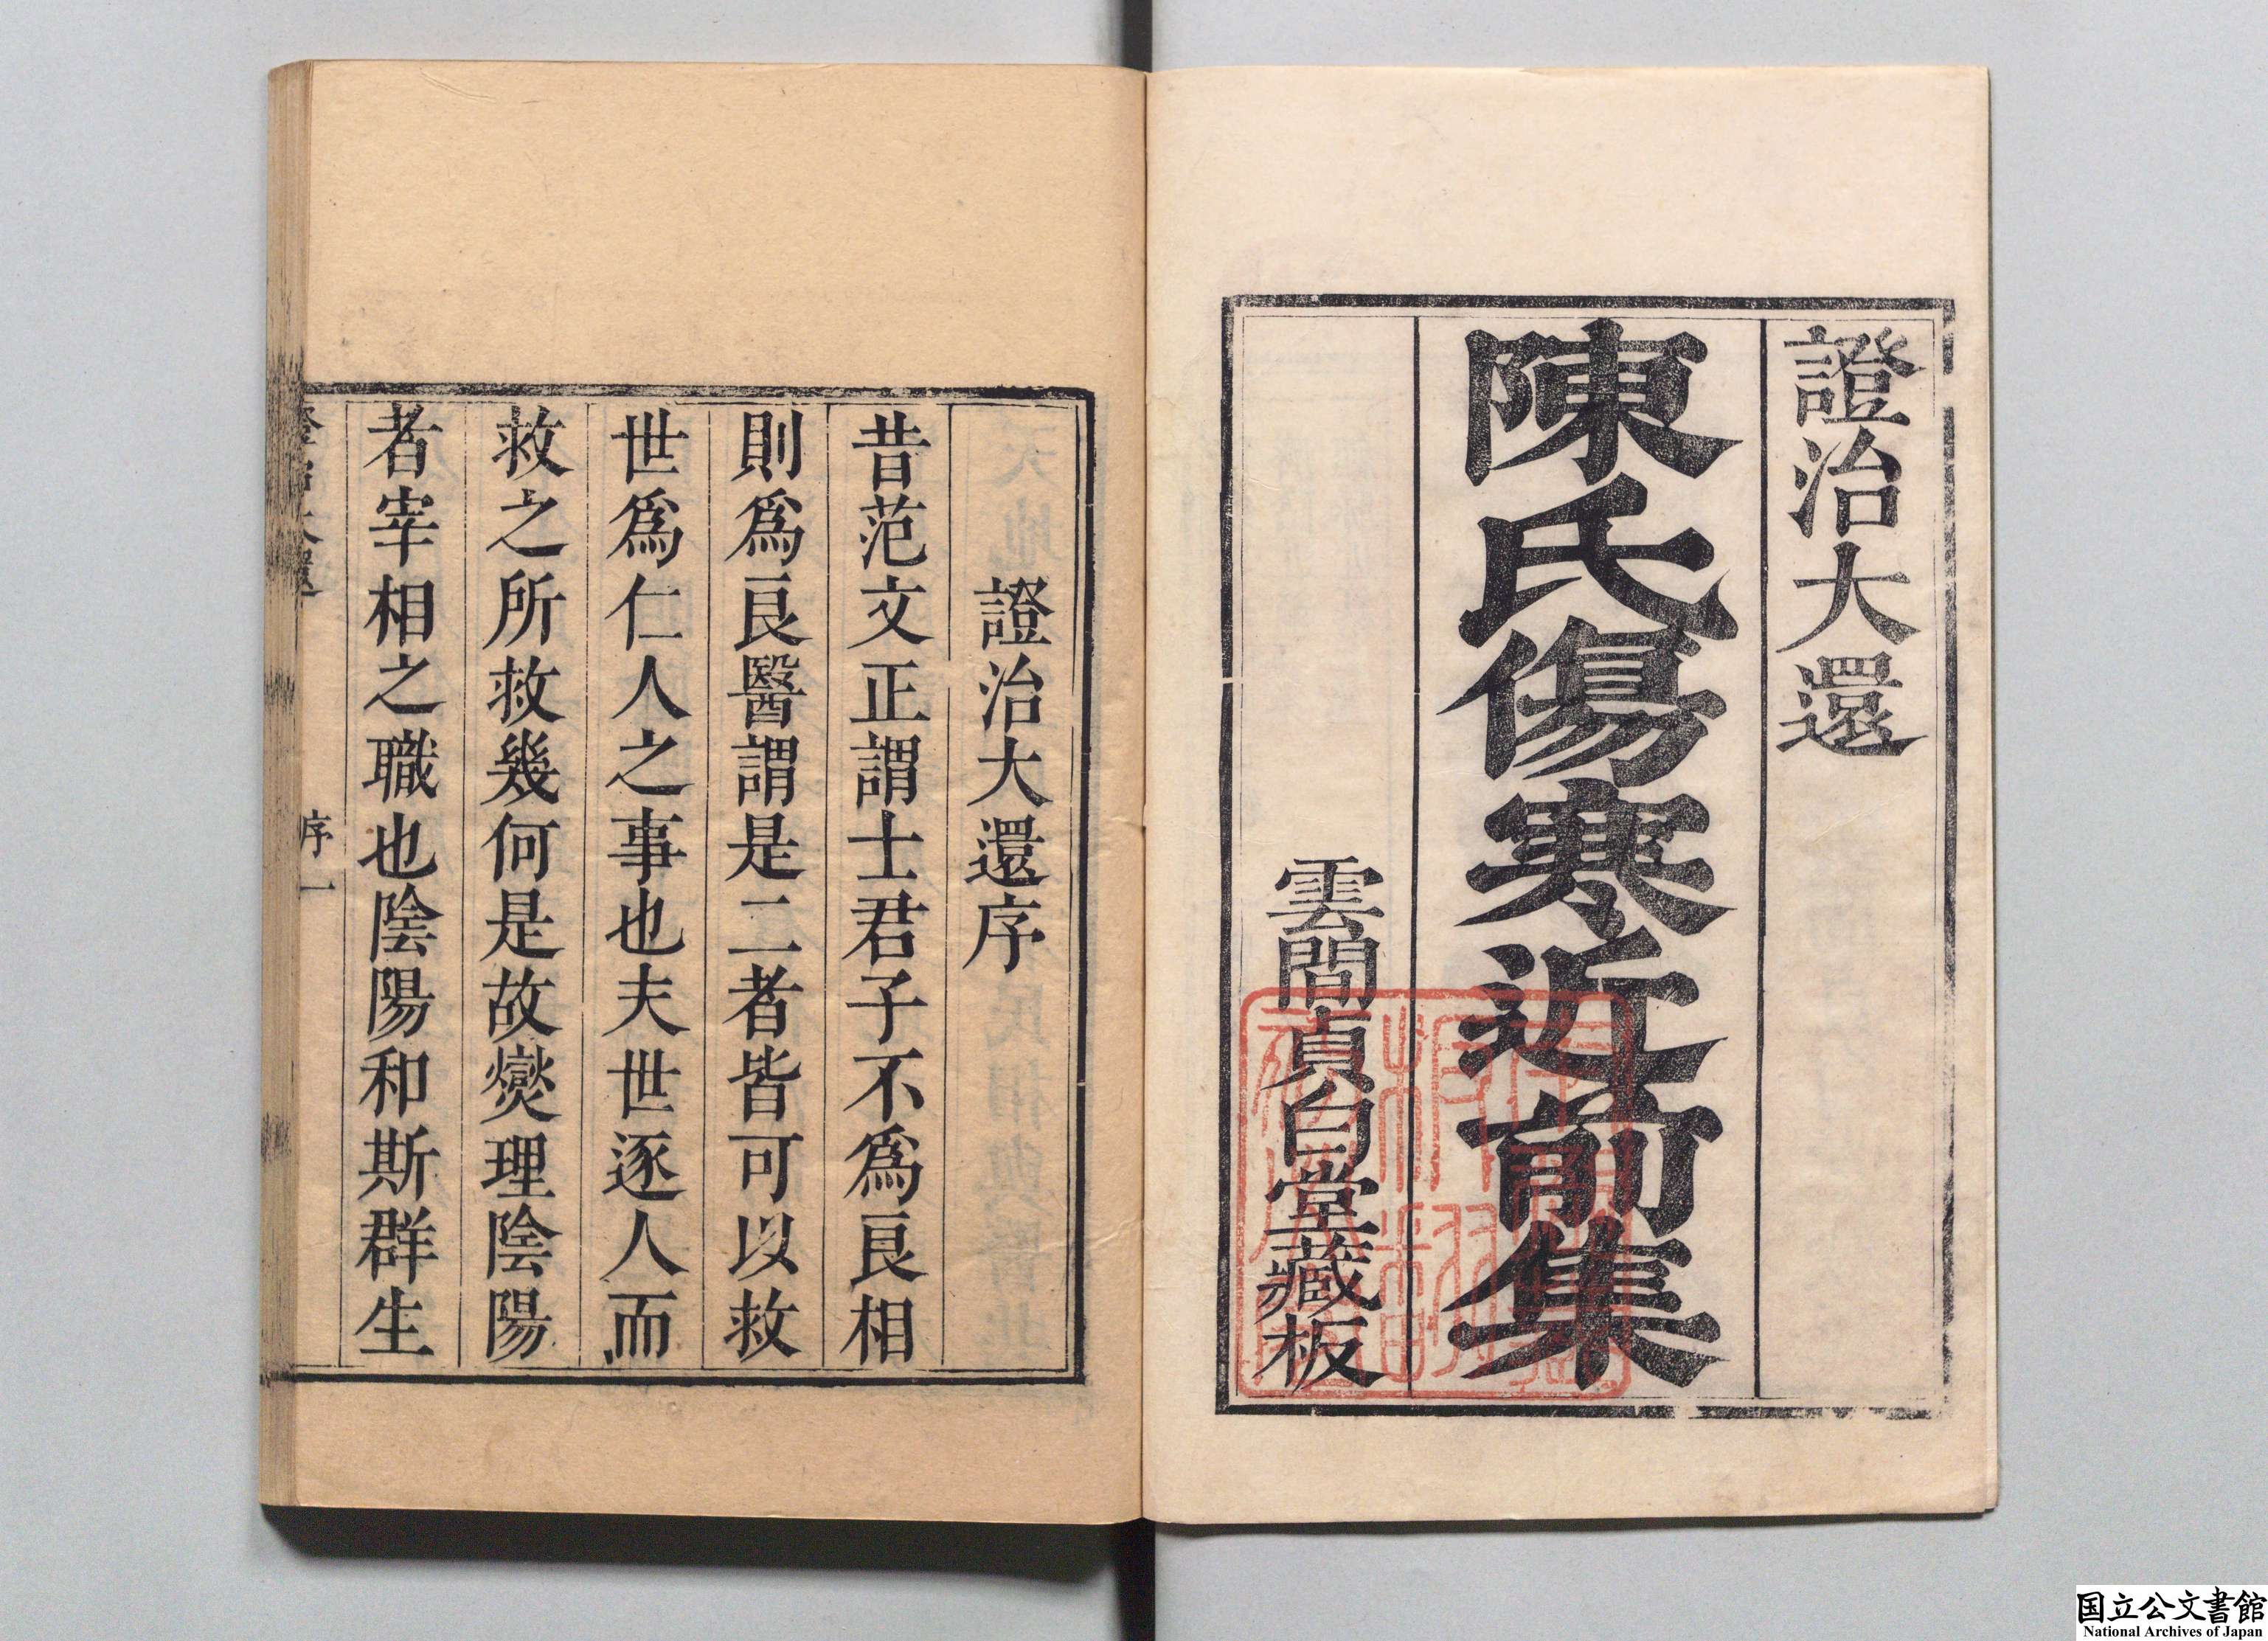 證治大還
陳氏傷寒近前集
雲間貞白堂藏板
證治大還序
昔范文正謂士君子不爲良相
則爲良醫謂是二者皆可以救
世爲仁人之事也夫世逐人而
救之所救幾何是故燮理陰陽
者宰相之職也陰陽和斯群生
序一
国立公文書館
National Archives of Japan